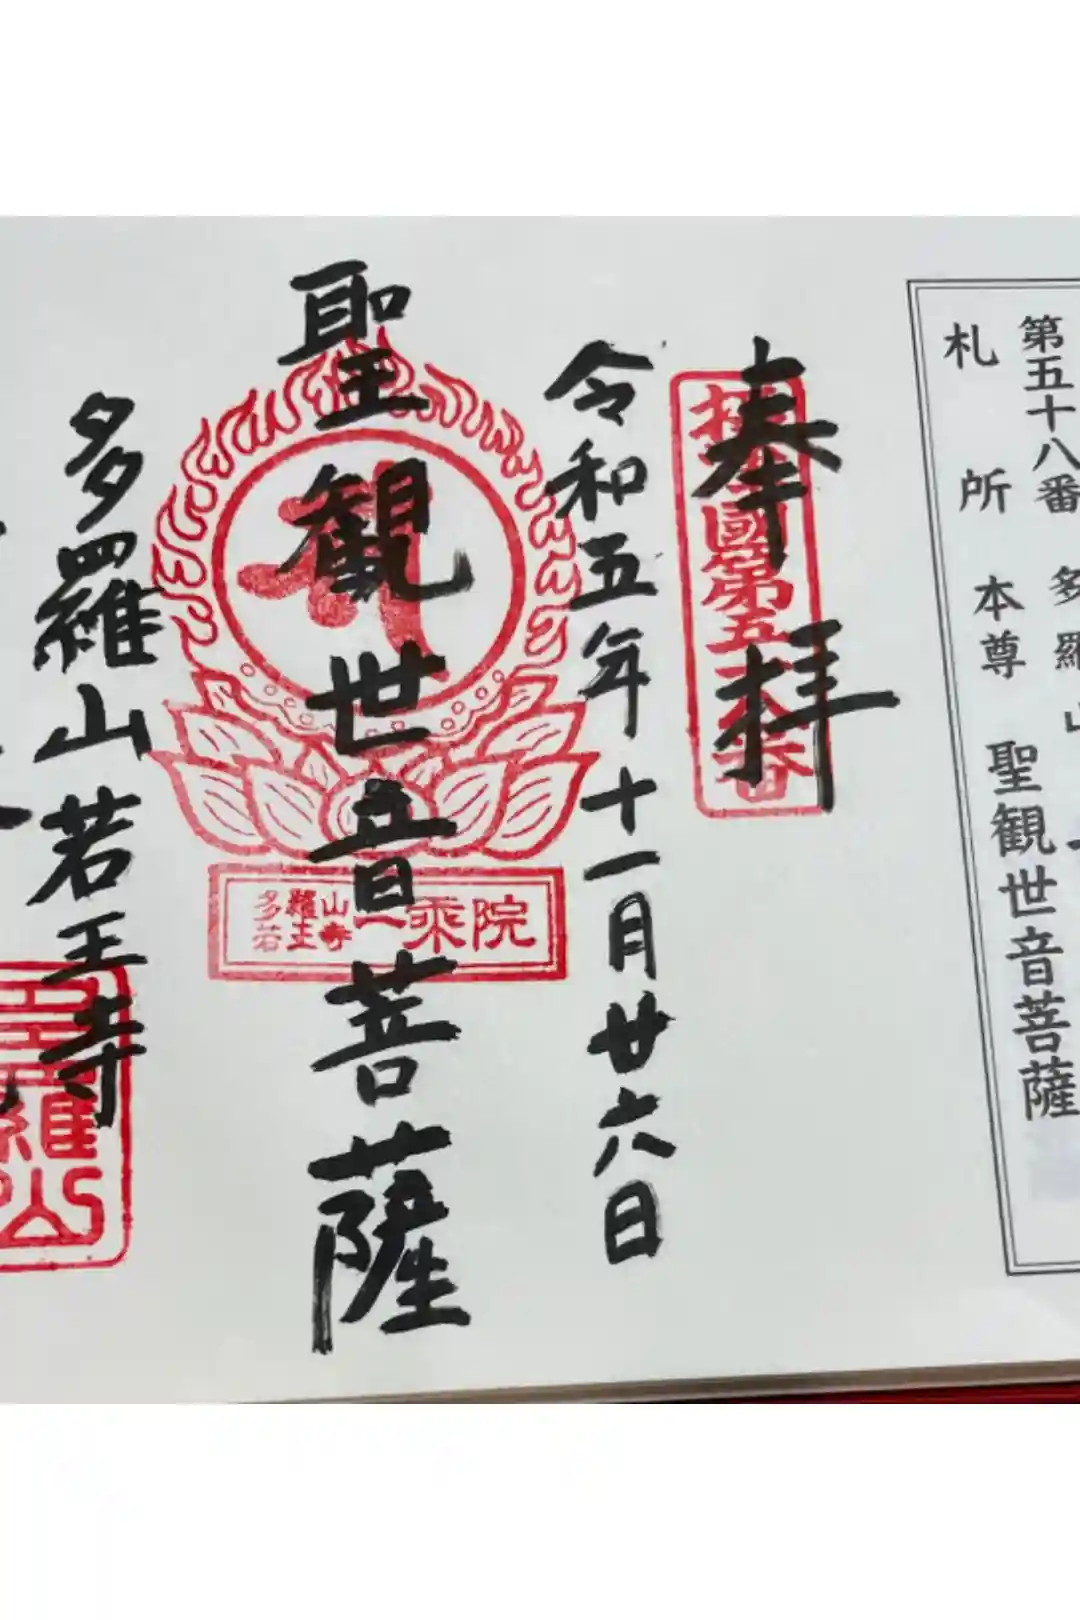 第五十八番 多羅山
札所本尊 聖観世音菩薩
奉拝
令和五年十一月廿六日
聖観世音菩薩
多羅山
若王寺
一乗院
多羅山若王寺